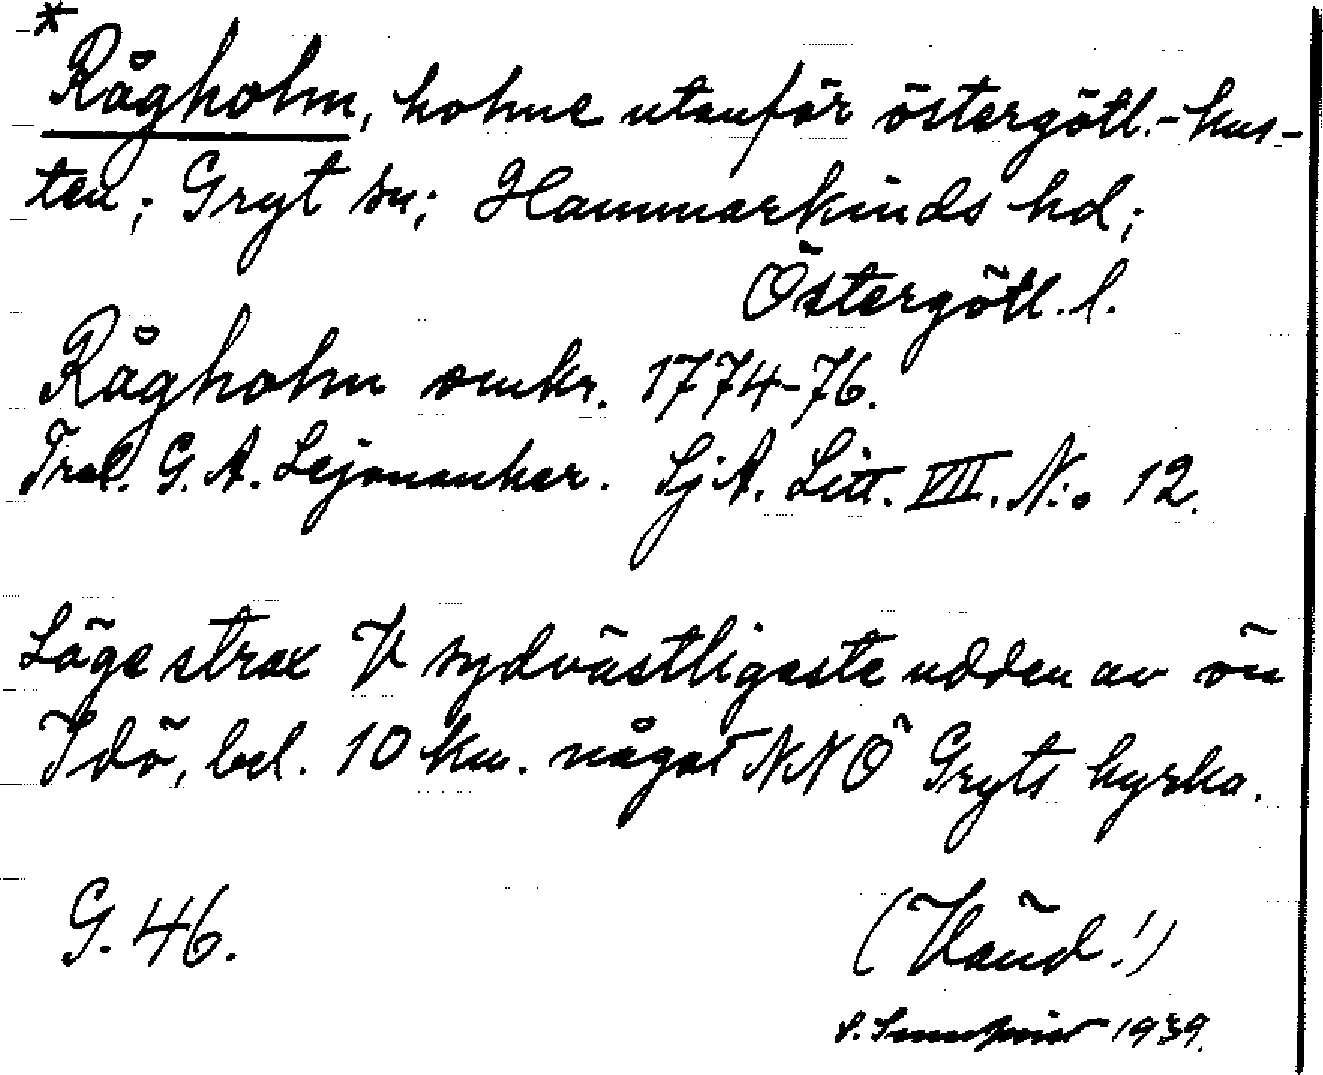 * Rågholm, holme utanför östergötl.-kus-
ten; Gryt sn; Hammarkinds hd;
Östergötl. l.
Rågholm omkr. 1774-76.
G. A. Lejonanker. SjA. Litt. VII. N:o 12.
Läge strax V sydvästligaste udden av ön
Idö, bel. 10 km. något NNÖ Gryts kyrka.
G. 46.
(Vänd!)
1939.